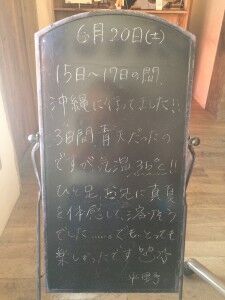 6月20日(土)
15日～17日の間、
沖縄に行ってました!!
3日間、晴天だったの
ですが気温35℃!!
ひと足お先に真夏
を体感して溶けそう
でした……。でもとっても
楽しかったです